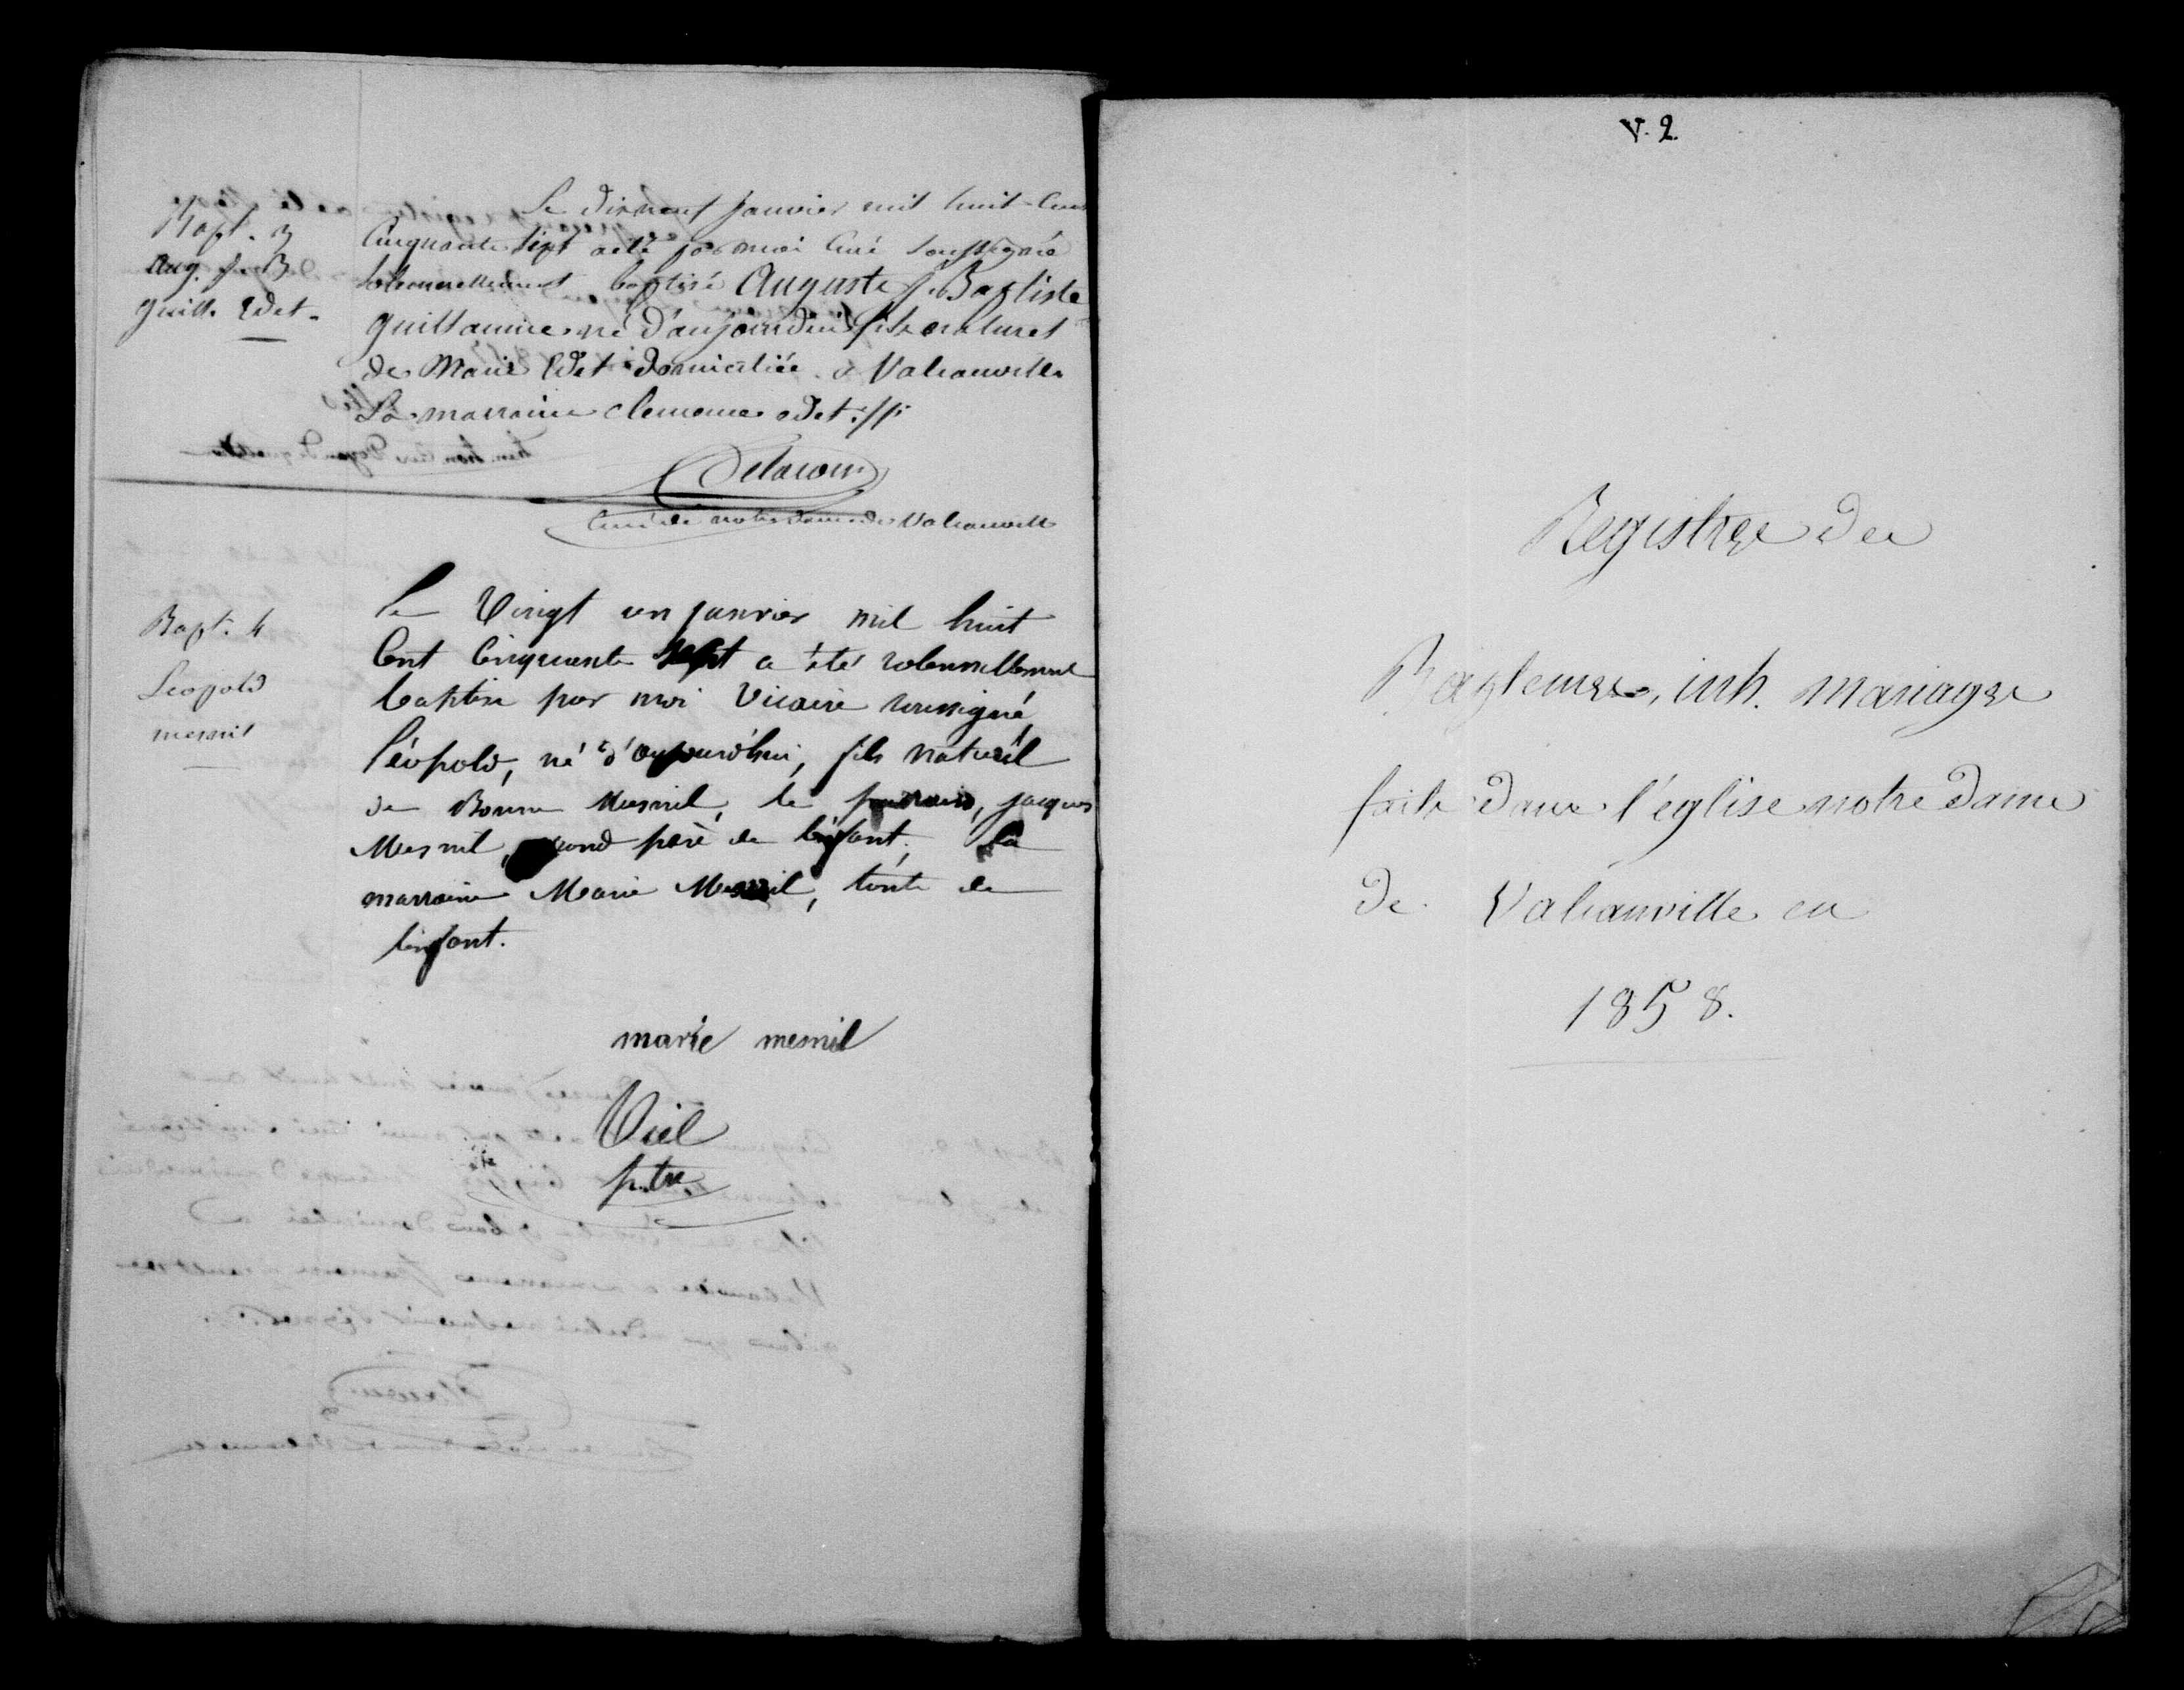 Bapt. 3
Aug. J. B.
Guill. Odet.
Le dixneuf janvier mil huit-cent
Cinquante sept a été par moi Curé soussigné
solennellement baptisé Auguste J. Baptiste
Guillaume né d'aujourdhui fils naturel
de Marie Odet domiciliée à Valcanville
La marraine Clemence Odet
Delacour
Curé de notre dame de Valcanville
Bapt. 4
Léopold
mesnil
Le Vingt un janvier mil huit
Cent Cinquante Sept a été solennellement
baptisé par moi Vicaire soussigné,
Léopold, né d'aujourd'hui, fils naturel
de Bonne Mesnil, le parrain, jacques
Mesnil, grand père de l'enfant, la
marraine Marie Mesnil, tante de
l'enfant.
marie mesnil
Viel
ptre
V. 2.
Registre des
Baptemes, inh. mariages
faits dans l'église notre dame
de Valcanville en
1858.